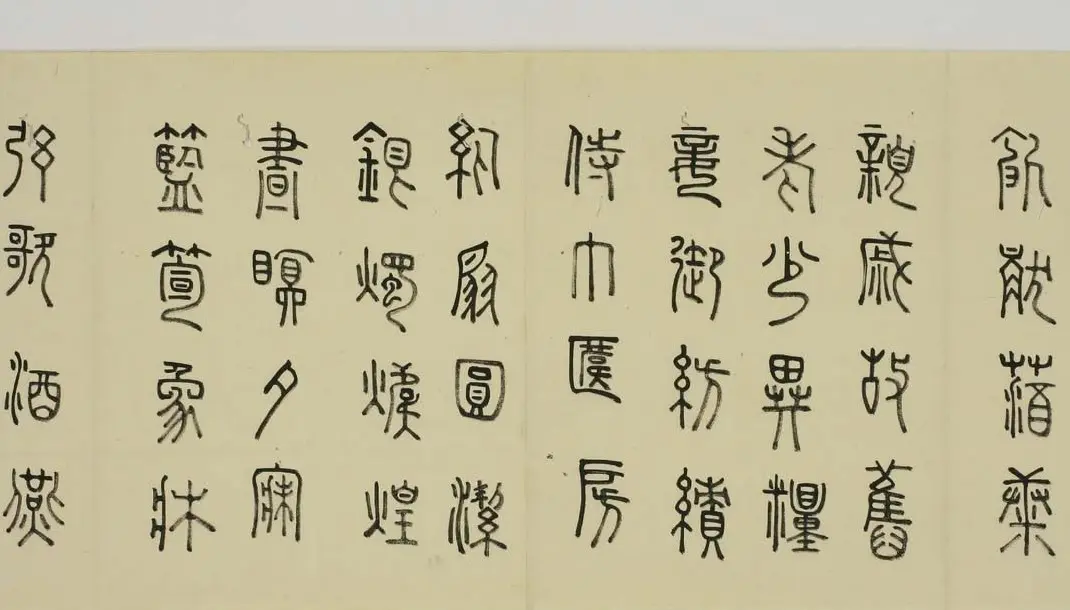 飢猒糟糠
親戚故舊
老少異糧
妾御紡績
侍巾帷房
紈扇圓潔
銀燭煒煌
晝瞑夕寐
籃筍象牀
弦歌酒燕